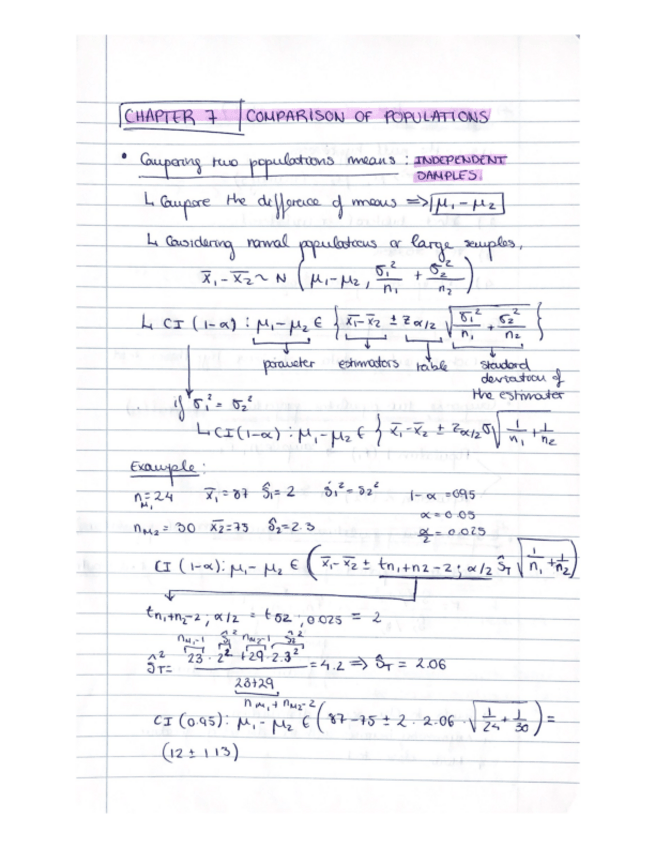 CHAPTER 7 COMPARISON OF POPULATIONS
• Comparing two populations means : INDEPENDENT
DAMPLES.
↳ Compare the difference of means => μ₁ - μ₂
↳ Considering normal populations or large samples,
x̄₁ - x̄₂ ~ N ( μ₁ - μ₂ , σ₁²/n₁ + σ₂²/n₂ )
↳ CI (1-α) : μ₁ - μ₂ ∈ { x̄₁ - x̄₂ ± z α/2 √ σ₁²/n₁ + σ₂²/n₂ }
parameter estimators table standard
deviation of
the estimater
if σ₁² = σ₂²
↳ CI (1-α) : μ₁ - μ₂ ∈ } x̄₁ - x̄₂ ± z α/2 σ √ 1/n₁ + 1/n₂
Example :
n μ₁ = 24 x̄₁ = 87 ŝ₁ = 2 ŝ₁² = ŝ₂² 1-α = 095
α = 0.05
n μ₂ = 30 x̄₂ = 75 ŝ₂ = 2.3 α/2 = 0.025
CI (1-α) : μ₁ - μ₂ ∈ ( x̄₁ - x̄₂ ± tn₁+n₂-2 ; α/2 ŝT √ 1/n₁ + 1/n₂ )
tn₁+n₂-2 ; α/2 = t 52 ; 0.025 = 2
n μ₁-1 ŝ₁² n μ₂-1 ŝ₂²
ŝT² = 23 · 2² + 29 · 2.3² / 23+29 = 4.2 => ŝT = 2.06
n μ₁ + n μ₂-2
CI (0.95) : μ₁ - μ₂ ∈ ( 87 - 75 ± 2 · 2.06 · √ 1/24 + 1/30 ) =
(12 ± 1.13)